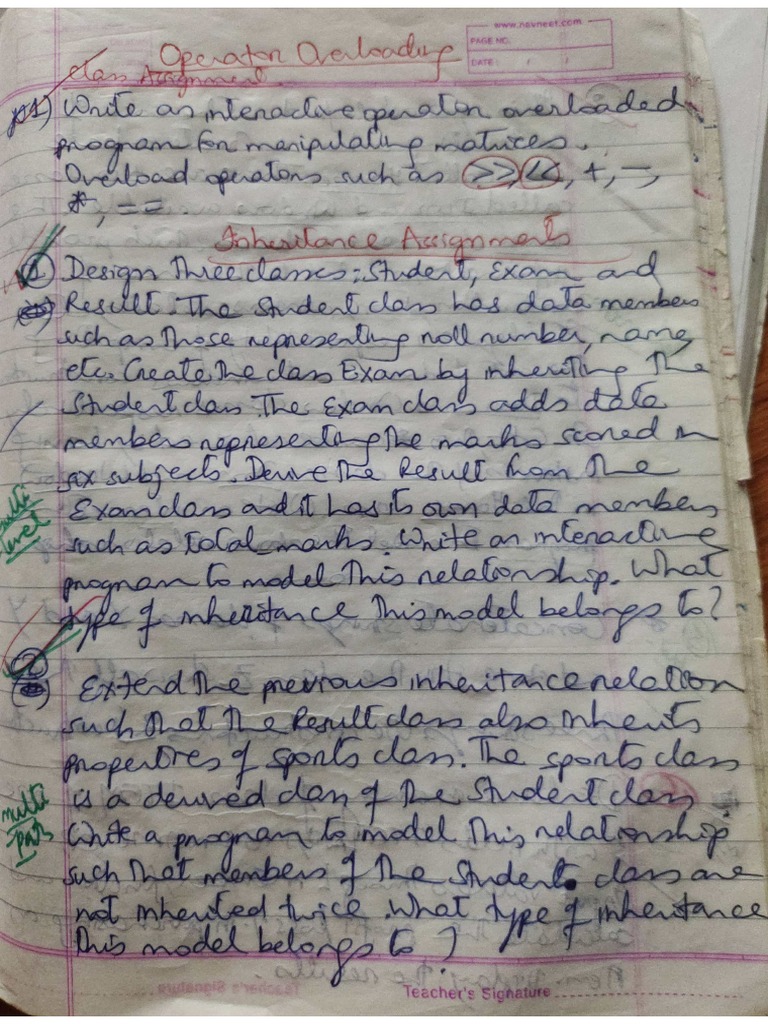 www.navneet.com
PAGE NO.
DATE: / /
Operator Overloading
Class Assignment
1) Write an interactive operator overloaded
program for manipulating matrices.
Overload operators such as >>, <<, +, -,
*, ==
Inheritance Assignments
1 Design Three classes: Student, Exam and
Result. The Student class has data members
such as Those representing roll number, name,
etc. Create The class Exam by inheriting The
Student class. The Exam class adds data
members representing The marks scored in
six subjects. Derive The Result from The
Exam class and it has its own data members
such as total_marks. Write an interactive
multi
level
program to model This relationship. What
type of inheritance This model belongs to?
2
Extend The previous inheritance relation
such that The Result class also inherits
properties of sports class. The sports class
is a derived class of The Student class
multi
Path
Write a program to model This relationship
such that members of The Student class are
not inherited twice. What type of inheritance
This model belongs to?
Teacher's Signature